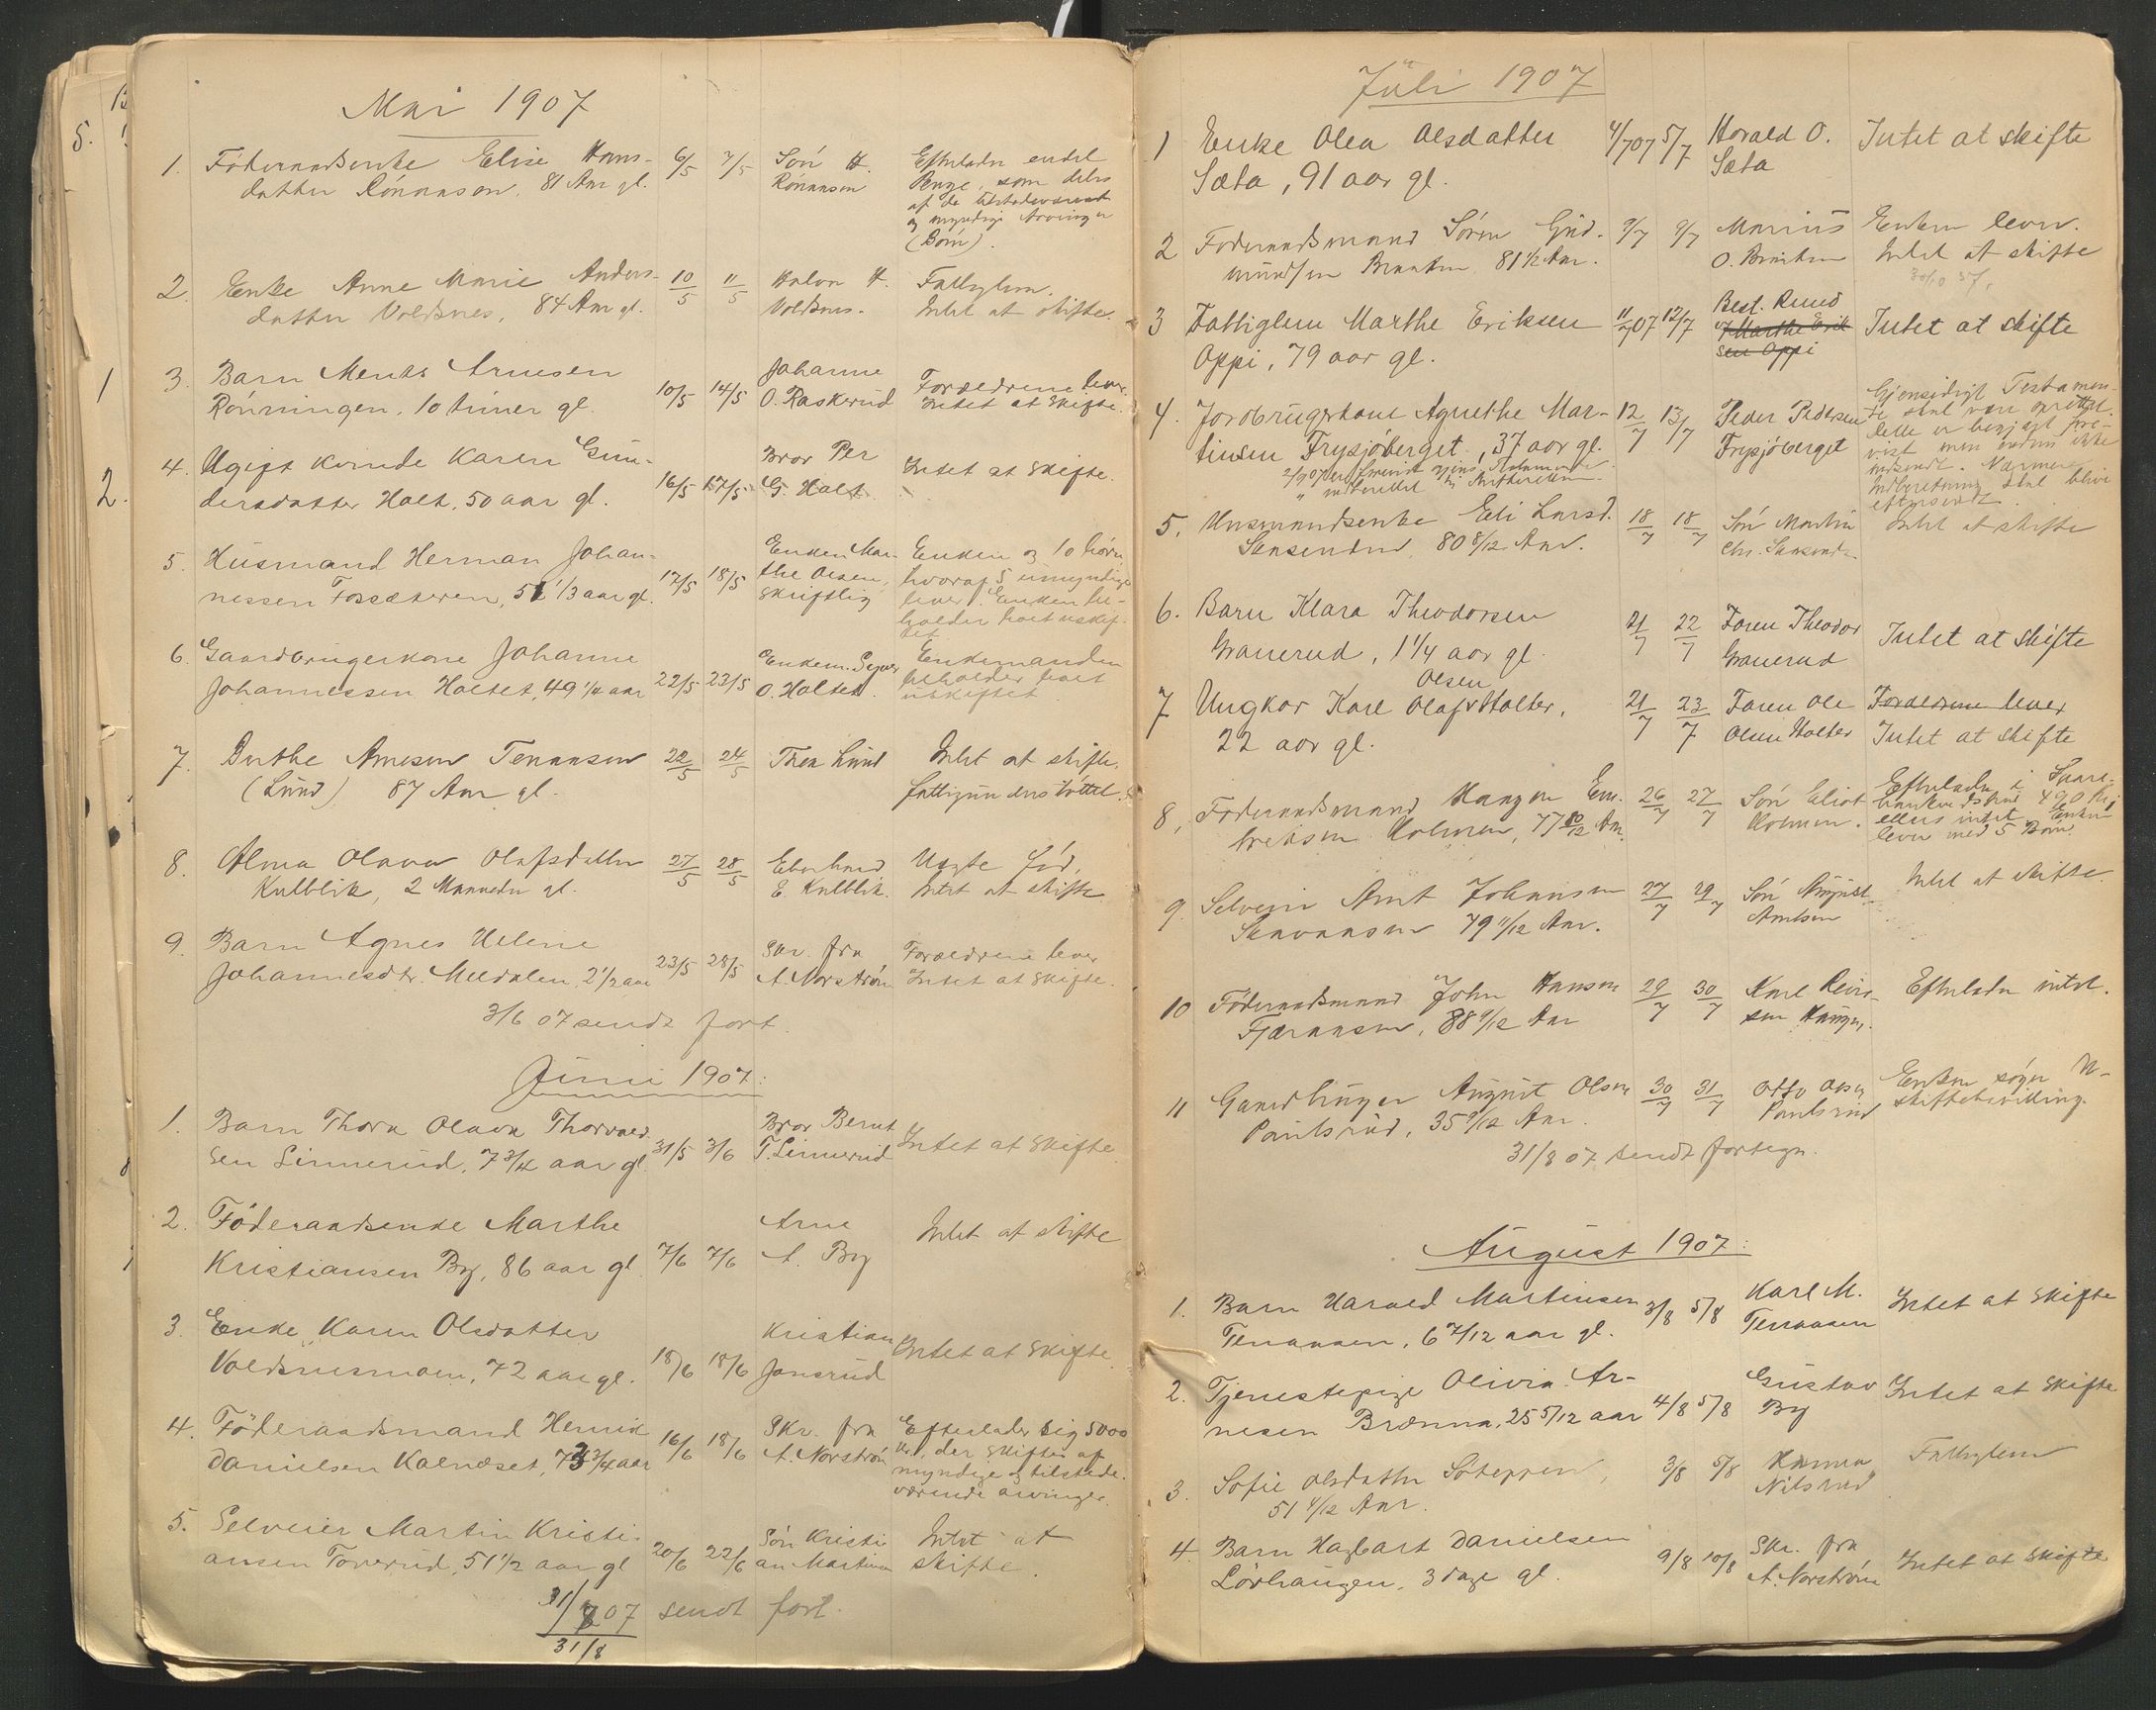 Mai 1907
1. Föderaadsenke Elise Hans- 6/5 7/5 Sön H. Efterlader endel
datter Rönaasen, 81 Aar gl. Rönaasen Penge, som deles
af de tilstedeværende
og myndige Arvinger
(Börn).
2. Enke Anne Marie Anders- 10/5 11/5 Halvor H. Fattiglem.
datter Voldsnes, 84 Aar gl. Voldsnes. Intet at skifte.
3. Barn Arnesen Johanne Forældrene lever.
Rönningen, 10 timer gl. 10/5 14/5 O. Raskerud Intet at skifte.
4. Ugift kvinde Karen Gun- Bror Per Intet at skifte.
dersdatter Holt, 50 aar gl. 16/5 17/5 G. Holt
5. Husmand Herman Johan- Enken Mar- Enken og 10 börn,
nessen Fossæteren, 51 1/3 aar gl. 17/5 18/5 the Olsen, hvoraf 5 umyndige
skriftlig lever. Enken be-
holder boet uskif-
tet
6. Gaardbrugerkone Johanne Enkem. Syver Enkemanden
Johannessen Holtet, 49 1/4 aar 22/5 23/5 O. Holtet. beholder boet
uskiftet
7. Dorthe Arnesen Tenaasen 22/5 24/5 Thea Lund Intet at skifte.
(Lund) 87 Aar gl. fattigunderstöttet.
8. Alma Olava Olafsdatter 27/5 28/5 Eberhard Uægte föd.
Kulblik, 2 Maaneder gl. E. Kulblik. Intet at skifte
9. Barn Agnes Helene Skr. fra Forældrene lever
Johannesdtr. Meldalen, 2 1/2 aar 23/5 28/5 A. Norström Intet at skifte.
3/6 07 sendt fort.
Juni 1907:
1. Barn Thora Olava Thorvald- Bror Bernt
sen Linnerud, 7 3/4 aar gl. 31/5 3/6 T. Linnerud Intet at skifte
2. Föderaadsenke Marthe Arne Intet at skifte
Kristiansen By, 86 aar gl 7/6 7/6 A. By
3. Enke Karen Olsdatter Kristian Intet at skifte.
Voldsnesmoen, 72 aar gl. 18/6 18/6 Jonsrud
4. Föderaadsmand Henrik 16/6 18/6 Skr. fra Efterlader sig 5000
Danielsen Kalnæset, 73 3/4 aar A. Norström kr., der skiftes af
myndige og tilstede-
værende arvinger.
5. Selveier Martin Kristi- Sön Kristi- Intet at
ansen Torrerud, 51 1/2 aar gl 20/6 22/6 an Martinsen skifte.
31/7 07 sendt fort.
31/8
Juli 1907
1 Enke Olea Olsdatter 4/7 07 5/7 Harald O. Intet at skifte
Sæta, 91 aar gl. Sæta
2 Föderaadsmand Sören Gud- 9/7 9/7 Marius Enken lever.
mundsen Braaten 81 1/2 Aar. O. Braaten Intet at skifte
3 Fattiglem Marthe Eriksen 11/7 07 12/7 Best. Ruud Intet at skifte
Oppi, 79 aar gl. v/ Marthe Erik
sen Oppi
4. Jordbrugerkone Agnethe Mar- 12/7 13/7 Peder Pedersen Gjensidigt Testamen-
tinsen Frysjöberget, 37 aar gl. Frysjöberget te skal være oprettet.
dette er begjært fore-
vist men endnu ikke
indsendt. Nærmere
Indberetning skal blive
eftersendt.
5. Husmandsenke Eli Larsd. 18/7 18/7 Sön Martin Intet at skifte
80 8/12 Aar. Chr.
6. Barn Klara Theodorsen 21/7 22/7 Faren Theodor Intet at skifte
Granerud, 1 1/4 aar gl. Granerud
7 Ungkar Karl Olaf Olsen Holter, 21/7 23/7 Faren Ole Forældrene lever
22 aar gl. Olsen Holter Intet at skifte
8, Föderaadsmand Haagen Em- 26/7 27/7 Sön Eliot Efterlader i Spare-
bretsen Holmen, 77 10/12 Aar. Holmen. bankindskud 490 Kr,
ellers intet. Enken
lever med 5 Börn.
9. Selveier Arnt Johansen 27/7 29/7 Sön August Intet at skifte
79 11/12 Aar. Arntsen
10 Föderaadsmand John Hansen 29/7 30/7 Karl Efterlader intet.
Fjæraasen, 88 9/12 Aar Haugen.
11 Gaardbruger August Olsen 30/7 31/7 Otto Olsen Enken söger U-
Paulsrud, 35 9/12 Aar. Paulsrud skiftebevilling.
31/8 07 sendt fortegn.
August 1907:
1. Barn Harald Martinsen 3/8 5/8 Karl M. Intet at skifte
Tenaasen, 6 7/12 aar gl. Tenaasen
2. Tjenestepige Olivia Ar- Gustav Intet at skifte
nesen Brænna, 25 5/12 aar 4/8 5/8 By
3. Sofie Olsdatter 3/8 5/8 Hanna Fattiglem
51 9/12 Aar. Nilsrud
4. Barn Hagbart Danielsen 9/8 10/8 Skr. fra Intet at skifte
Lövhaugen, 3 dage gl. A. Norström